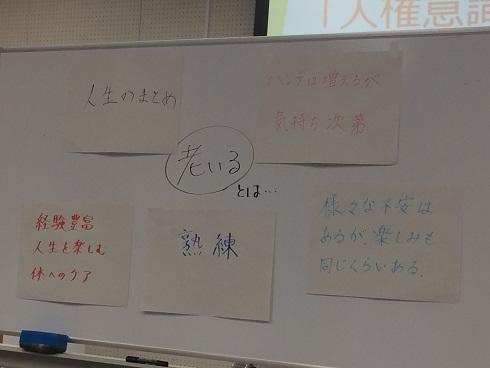 「人権意識
人生のまとめ
ハンデは増えるが
気持ち次第
老いる
とは…
経験豊富
人生を楽しむ
体へのケア
熟練
様々な不安は
あるが、楽しみも
同じくらいある。